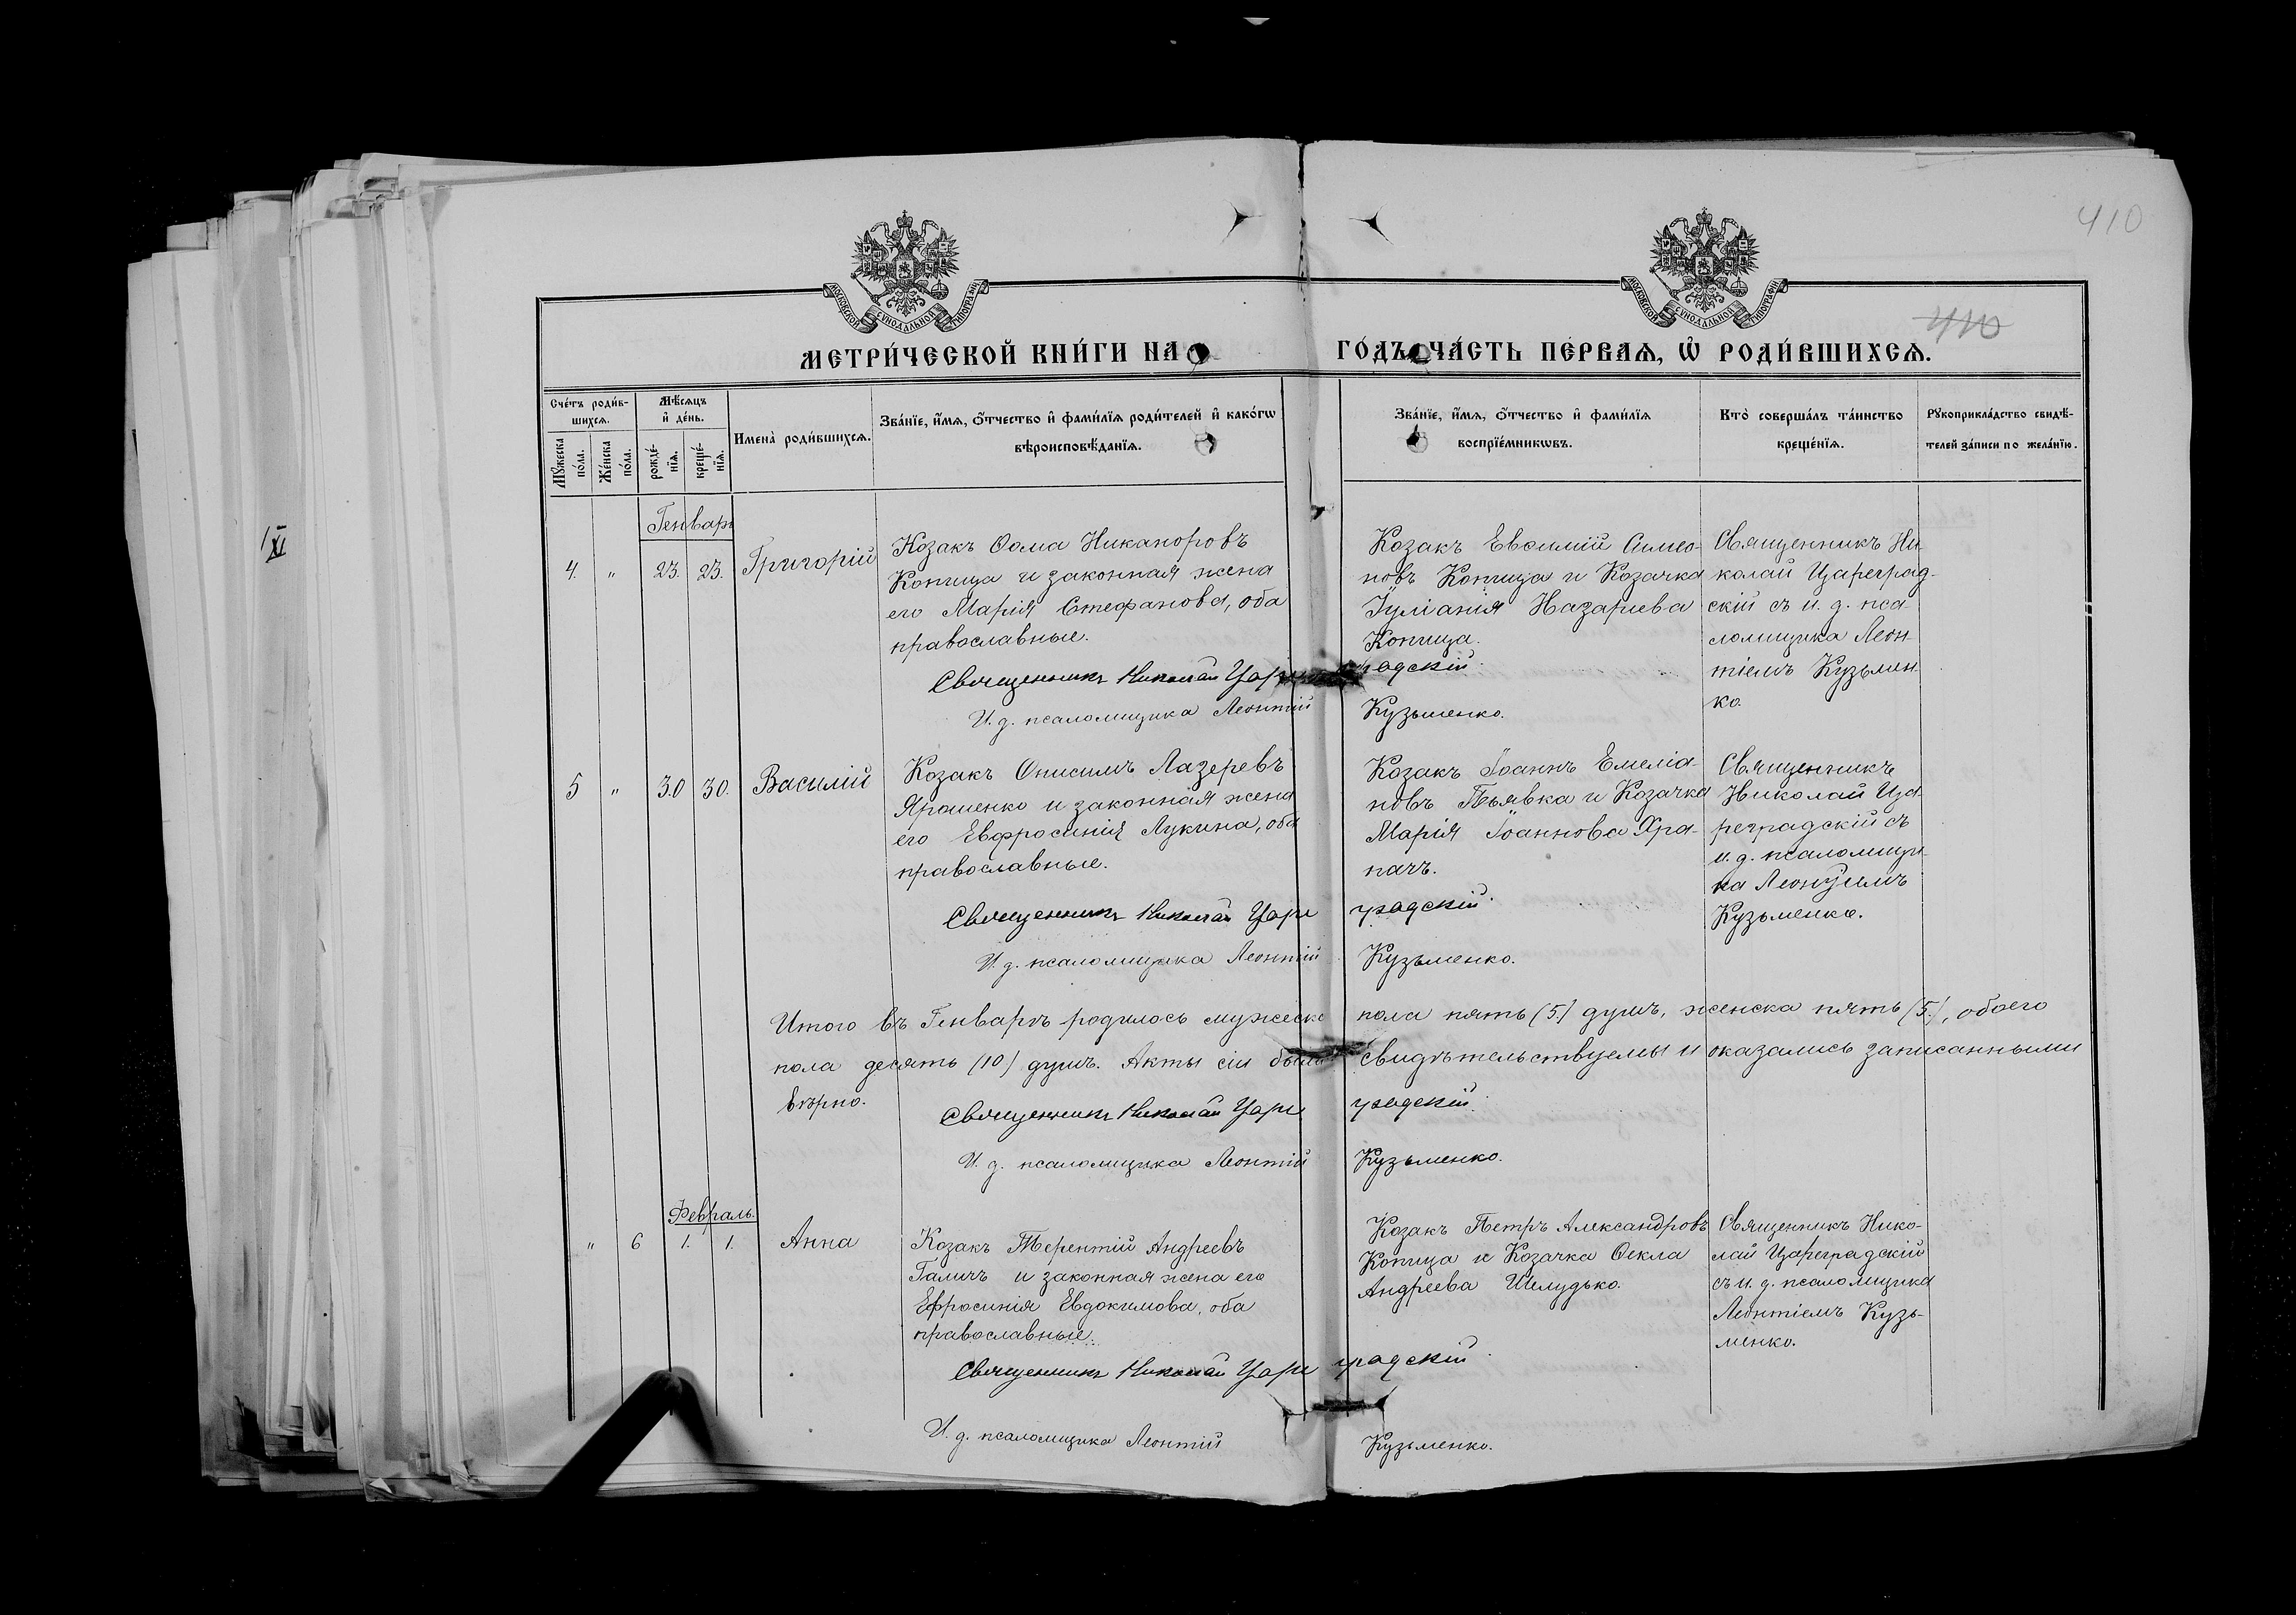 410
410
МОСКОВСКОЙ СѴНОДАЛЬНОЙ ТИПОГРАФІИ
МОСКОВСКОЙ СѴНОДАЛЬНОЙ ТИПОГРАФІИ
МЕТРИ́ЧЕСКОЙ КНИ́ГИ НА
ГО́ДЪ ЧА́СТЬ ПЕ́РВАѦ, Ѡ҆ РОДИ́ВШИХСѦ.
Сче́тъ роди́в-
шихсѧ.
Мꙋ́жеска по́ла.
Же́нска по́ла.
Мѣ́сѧцъ
и҆ де́нь.
рожде́-
нїѧ.
креще́-
нїѧ.
Имена̀ роди́вшихсѧ.
Зва́нїе, и҆́мѧ, ѻ҆́тчество и҆ фами́лїѧ роди́телей и҆ како́гѡ
вѣроисповѣ́данїѧ.
Зва́нїе, и҆́мѧ, ѻ҆́тчество и҆ фами́лїѧ
воспрїе́мникѡвъ.
Кто̀ соверша́лъ та́инство
креще́нїѧ.
Рꙋкоприкла́дство свидѣ́-
телей за́писи по жела́нїю.
Генварь
4. " 23. 23. Григорій
Козакъ Ѳома Никаноровъ
Копица и законная жена
его Марія Стефанова, оба
православные.
Козакъ Евѳимій Симео-
новъ Копица и Козачка
Іуліанія Назариева
Копица.
Священникъ Ни-
колай Цареград-
скій съ и. д. пса-
ломщика Леон-
тіемъ Кузьмен-
ко.
Священникъ Николай Цареградскій
И. д. псаломщика Леонтій Кузьменко.
5 " 30 30. Василій
Козакъ Онисимъ Лазеревъ
Ярошенко и законная жена
его Евфросинія Лукина, оба
православные.
Козакъ Іоаннъ Емеліа-
новъ Пьявка и Козачка
Марія Іоаннова Хра-
пачъ.
Священникъ
Николай Ца-
реградскій съ
и. д. псаломщи-
ка Леонтіемъ
Кузьменко.
Священникъ Николай Цареградскій
И. д. псаломщика Леонтій Кузьменко.
Итого въ Генварѣ родилось мужеска пола пять (5) душъ, женска пять (5), обоего
пола десять (10) душъ. Акты сіи были свидѣтельствуемы и оказались записанными
вѣрно.
Священникъ Николай Цареградскій
И. д. псаломщика Леонтій Кузьменко.
Февраль.
" 6 1. 1. Анна
Козакъ Терентій Андреевъ
Галичъ и законная жена его
Ефросинія Евдокимова, оба
православные.
Козакъ Петръ Александровъ
Копица и Козачка Ѳекла
Андреева Шелудько.
Священникъ Нико-
лай Цареградскій
съ и. д. псаломщика
Леонтіемъ Кузь-
менко.
Священникъ Николай Цареградскій
И. д. псаломщика Леонтій Кузьменко.